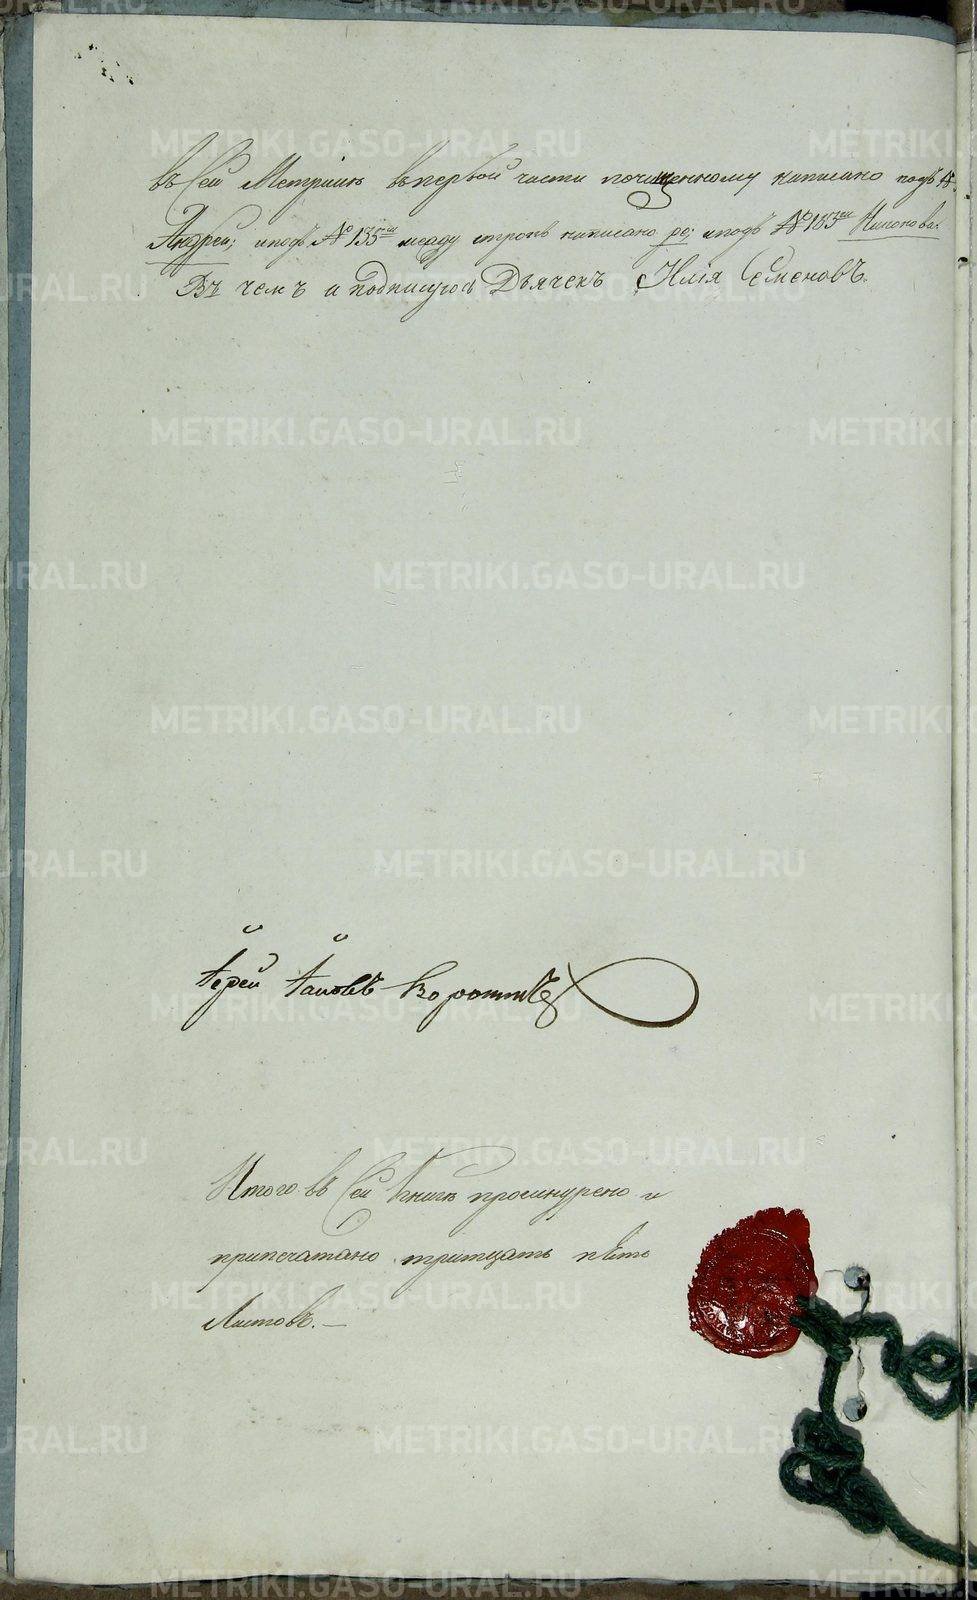 METRIKI.GASO-URAL.RU
въ Сей Метрикѣ въ первой части почищенному написано подъ №
Андрей; и подъ № 135м между строкъ написано ре; и подъ № 183м Никонова.
Въ чемъ и подписуюсь Дьячекъ Илія Семеновъ.
Іерей Іаковъ
Итого въ Сей Книгѣ прошнурено и
припечатано тритцать пѣть
Листовъ. —